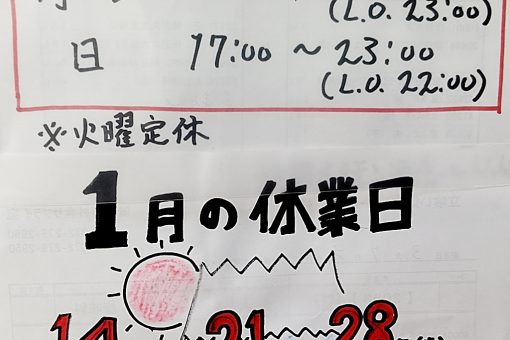 (L.O. 23:00)
日 17:00 ～ 23:00
(L.O. 22:00)
※火曜定休
1月の休業日
14 21 28